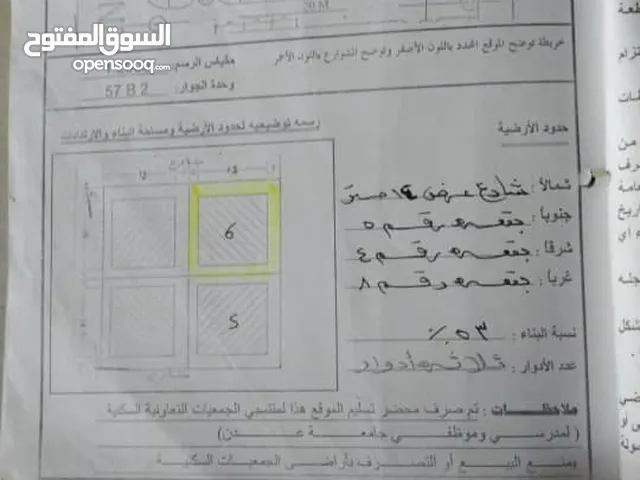 20 M
السوق المفتوح
opensooq.com
خريطة توضح الموقع المحدد باللون الأصفر وتوضح الشوارع باللون الأحمر
مقياس الرسم:
وحدة الجوار: 57 B 2
حدود الأرضية
رسمه توضيحيه لحدود الأرضية ومساحة البناء والارتدادات
شمالاً : شارع عرض ١٤ متر
جنوباً : بقعه رقم ٥
شرقاً : بقعه رقم ٤
غرباً : بقعه رقم ٨
6
5
نسبة البناء : ٥٣ %
عدد الأدوار : ثلاثه أدوار
ملاحظات : تم صرف محضر تسليم الموقع هذا لمنتسبي الجمعيات التعاونية السكنية
( لمدرسي وموظفي جامعة عدن)
يمنع البيع أو التصرف بأراضي الجمعيات السكنية